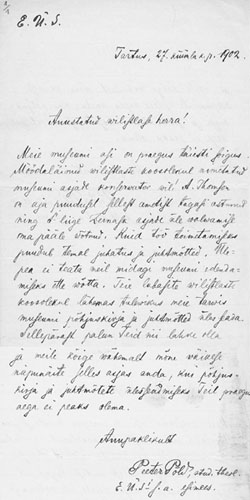 E. Ü. S.
Tartus, 27. küünla k. p. 1902
Austatud vilistlase herra!
Meie museumi asi on praegus täiesti
Möödaläinud vilistlaste koosolekul nimetatud
museumi asjade konservator vil. A. Thomson
on aja puudusel sellest ametist tagasi astunud
ning s. liige asjade üle valvamise
oma pääle võtnud. Kuid töö toimetamiseks
puudub temal juhatus ja juhtmõtted.
ei teata meil midagi museumi edenda-
miseks ette võtta. Teie lubasite vilistlaste
koosolekul lahmas museumi tarvis
museumi põhjuskirja ja juhtmõtted üles pada.
Sellepärast palun Teid nii lahke olla
ja meile kõige vähemalt mõne väikese
näpunäite selles asjas anda, kui põhjus-
kirja ja juhtmõtete ülesseadmiseks Teil praegu
aega ei peaks olema.
Auupaklikult
Peeter Põld, stud. theol.
E. Ü. S. s. a. esimees.